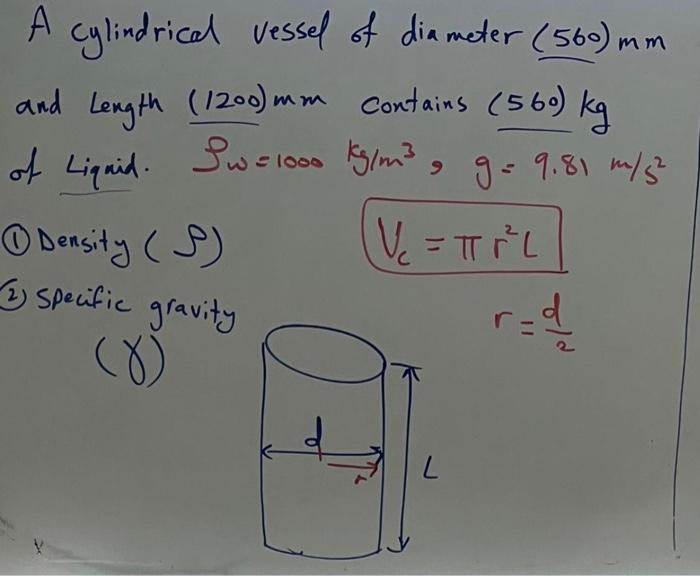 A cylindrical vessel of diameter (560) mm
and Length (1200) mm contains (560) kg
of Liquid. ρw = 1000 kg/m³ , g = 9.81 m/s²
① Density (ρ)
Vc = π r² L
② specific gravity
(γ)
r = d/2
d
r
L